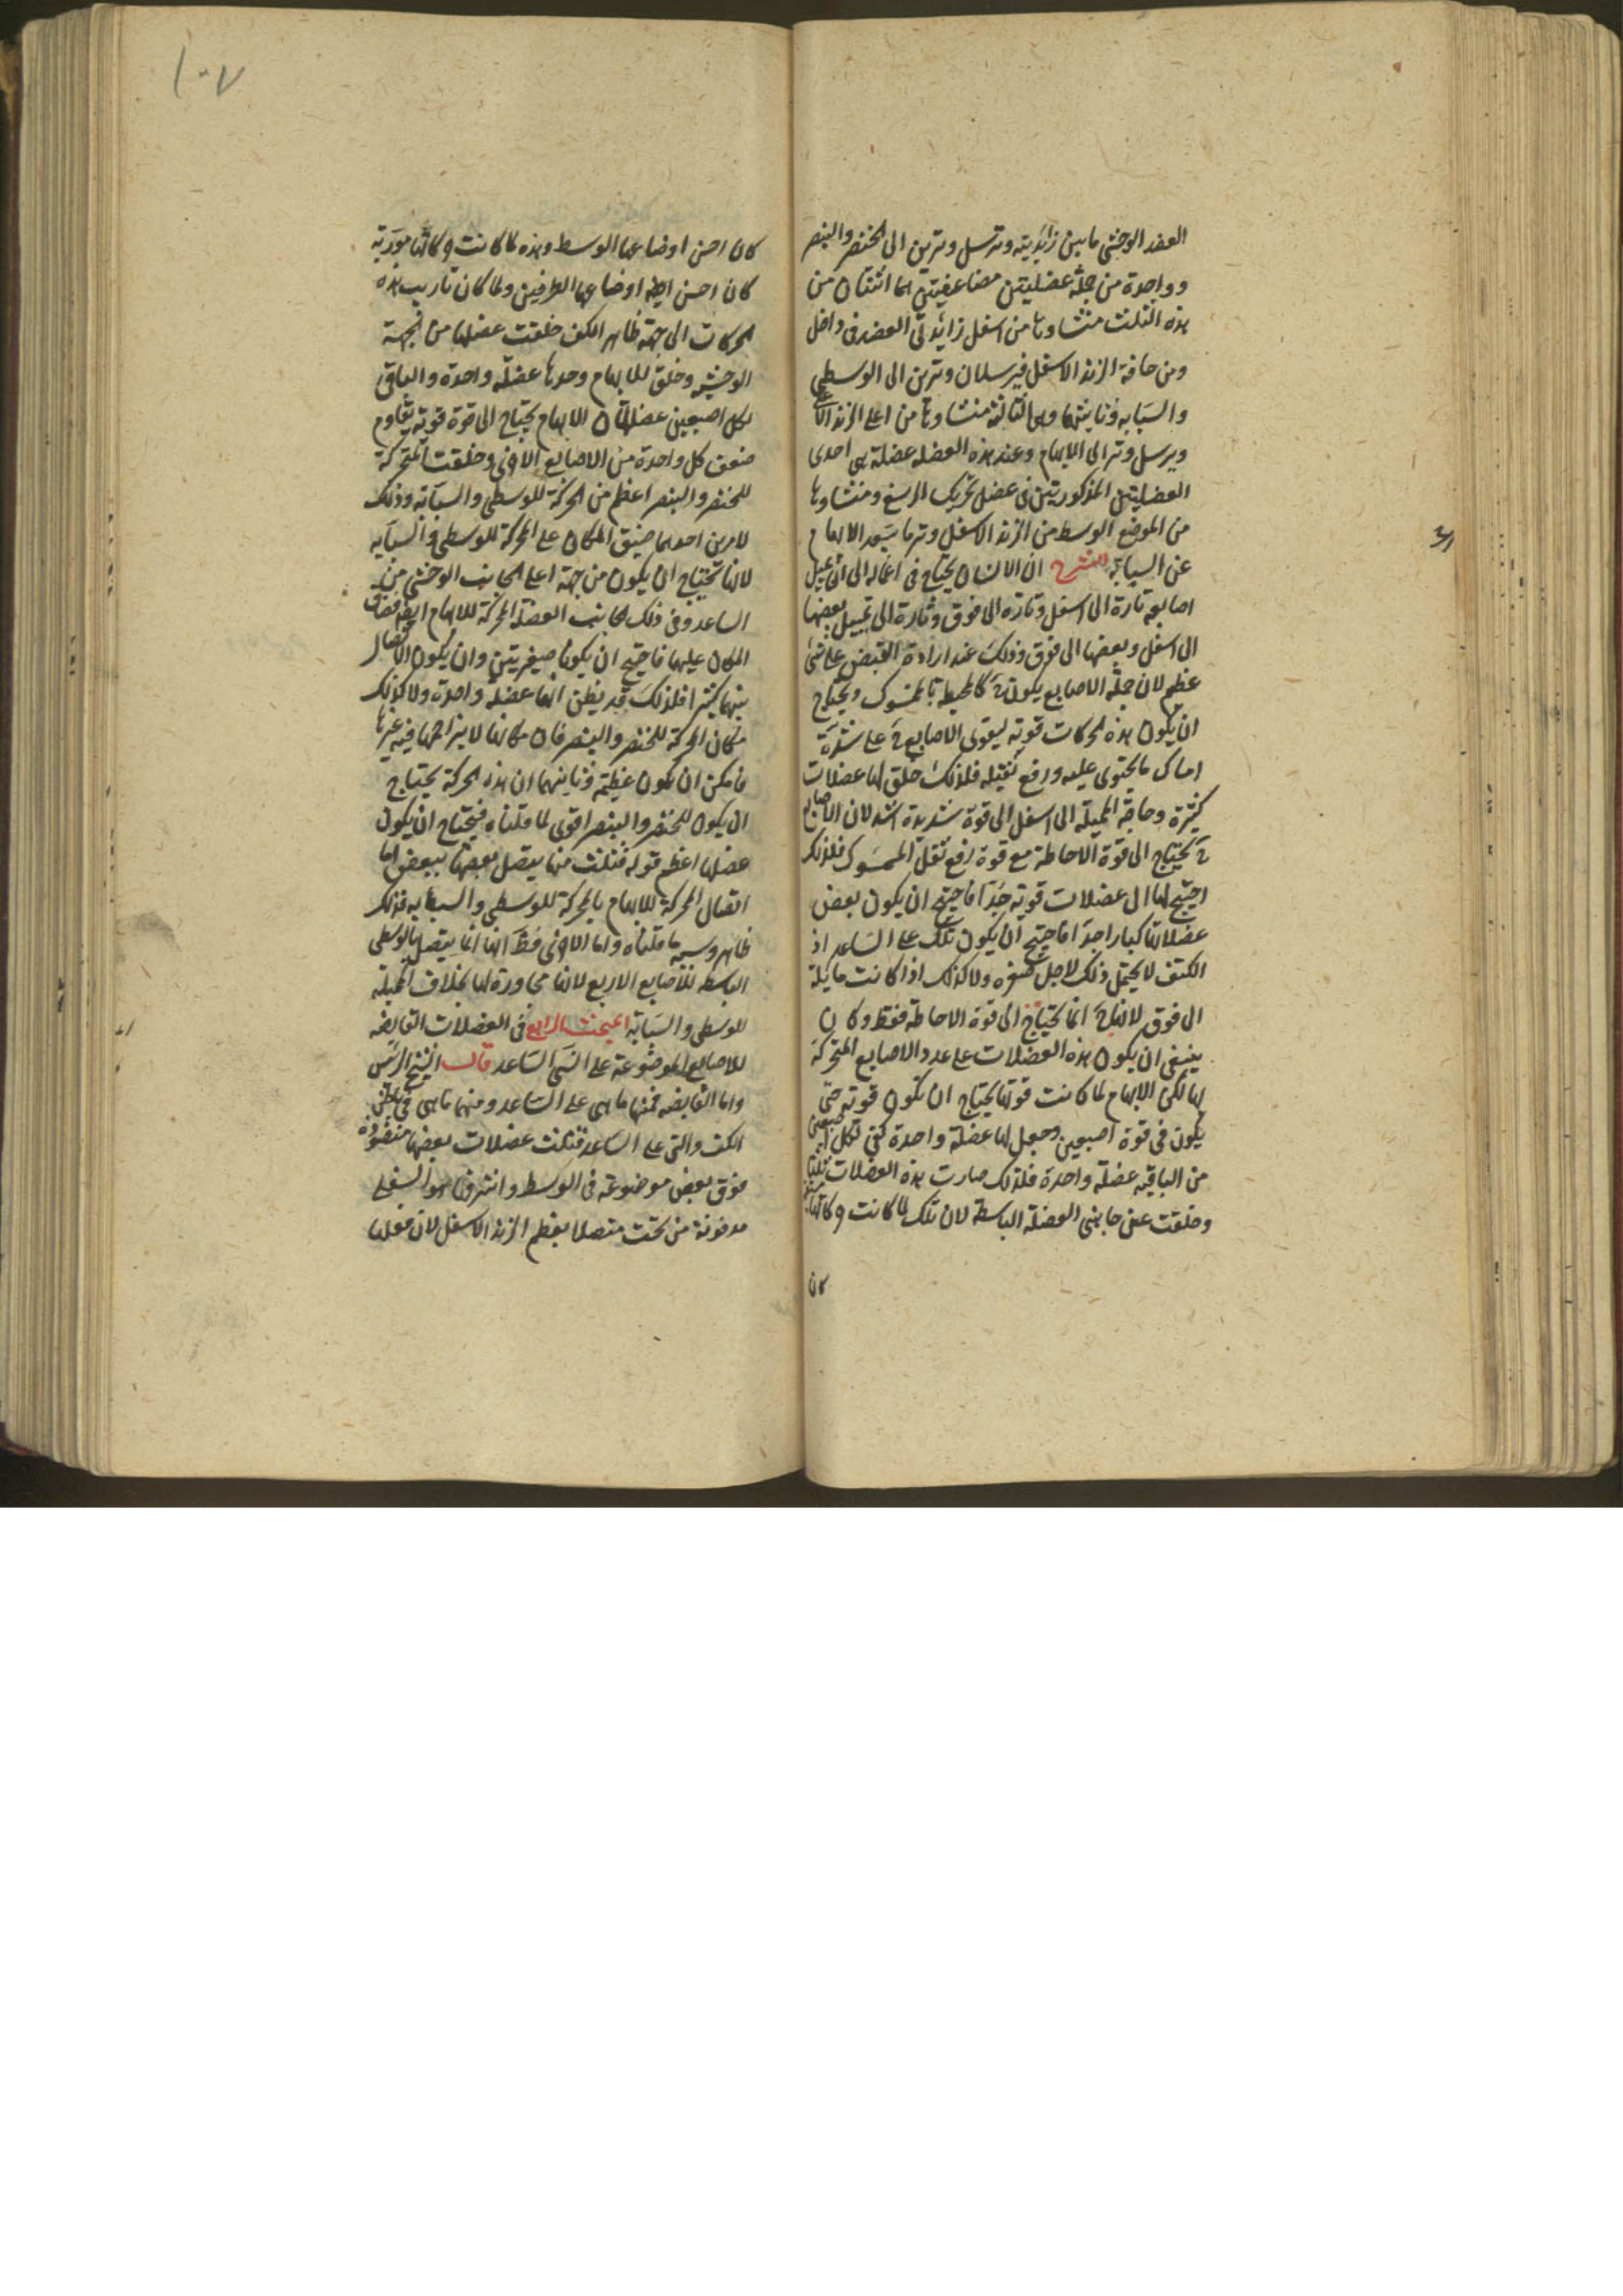 العضد الوحشى ما بين زائدتيه وترسل وترين الى الخنصر والبنصر
وواحدة من جملة عضليتين مضاعفتين هما اثنتان من
هذه الثلث منشاوها من اسفل زائدتى العضد فى داخل
ومن حافة الزند الاسفل فيرسلان وترين الى الوسطى
والسبابه وثانيتهما وهى الثالثة منشاوها من اعلى الزند الاعلى
ويرسل وترا الى الابهام وعند هذه العضله عضلة هى احدى
العضليتين المذكورتين فى عضل تحريك الرسغ ومنشاوها
من الموضع الوسط من الزند الاسفل وترها يبعد الابهام
عن السبابة الشرح ان الانسان يحتاج فى اعماله الى ان يميل
اصابعه تارة الى اسفل وتارة الى فوق وتارة الى تمييل بعضها
الى اسفل وبعضها الى فوق وذلك عند ارادة القبض على شئ
عظيم لان جملة الاصابع يكون ح كالمحيط بالممسوك ويحتاج
ان يكون هذه الحركات قوية ليقوى الاصابع ح على شدة
امساك ما يحتوى عليه ورفع ثقيله فلذلك خلق لها عضلات
كثيرة وحاجة المميلة الى اسفل الى قوة شديدة اشد لان الاصابع
ح يحتاج الى قوة الاحاطة مع قوة رفع ثقل الممسوك فلذلك
احتيج لها الى عضلات قوية جدا فاحتيج ان يكون بعض
عضلاتها كبارا جدا فاحتيج ان يكون تلك على الساعد اذ
الكتف لا يحتمل ذلك لاجل صغره ولا كذلك اذا كانت مايلة
الى فوق لانها ح انما يحتاج الى قوة الاحاطة فقط وكان
ينبغى ان يكون هذه العضلات على عدد الاصابع المتحركة
لها لكن الابهام لما كانت قوتها يحتاج ان تكون قوية حتى
يكون فى قوة اصبعين وجعل لها عضلة واحدة كفى لكل اصبعين
من الباقيه عضلة واحدة فلذلك صارت هذه العضلات ثلثا
وخلقت عن جانبى العضلة الباسطة لان تلك لما كانت حركاتها
كان
١٠٧
كان احسن اوضاعها الوسط وهذه لما كانت حركاتها موربة
كان احسن ايضا اوضاعها الطرفين ولما كان تاريب هذه
الحركات الى جهة ظاهر الكف خلقت عضلها من الجهة
الوحشيه وخلق للابهام وحدها عضلة واحدة والباقى
لكل اصبعين عضلة لان الابهام يحتاج الى قوة قوية يقاوم
ضعف كل واحدة من الاصابع الاخرى وخلقت المحركة
للخنصر والبنصر اعظم من المحركة للوسطى والسبابة وذلك
لامرين احدهما ضيق المكان على المحركة للوسطى والسبابه
لانها تحتاج ان يكون من جهة اعلى الجانب الوحشى من
الساعد وفى ذلك الجانب العضلة المحركة للابهام ايضا فضاق
المكان عليهما فاحتيج ان يكونا صغيرتين وان يكون الاتصال
بينهما كثيرا فلذلك قد يظن انهما عضلة واحدة ولا كذلك
مكان المحركة للخنصر والبنصر فان مكانها لا يزاحمها فيه غيرها
فامكن ان يكون عظيمة وثانيهما ان هذه الحركة يحتاج
ان يكون للخنصر والبنصر اقوى لما قلناه فيحتاج ان يكون
عضلها اعظم قوله فثلث منها يتصل بعضها ببعض اما
اتصال المحركة للابهام بالمحركة للوسطى والسبابه فذلك
ظاهر وسببه ما قلناه واما الاخرى فظ انها انما يتصل بالوسطى
الباسطه للاصابع الاربع لانها مجاورة لها بخلاف المميلة
للوسطى والسبابة المبحث الرابع فى العضلات القابضه
للاصابع الموضوعة على انسى الساعد قال الشيخ الرئيس
واما القابضه فمنها ما هى على الساعد ومنها ما هى فى باطن
الكف والتى على الساعد فثلث عضلات بعضها منضودة
فوق بعض موضوعة فى الوسط واشرفها هو السفلى
مدفونة من تحت متصلا بعظم الزند الاسفل لان فعلها